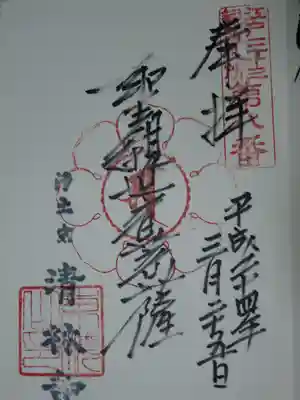 奉拝
聖観世音菩薩
平成二十四年
三月二十五日
浄土宗
清林寺